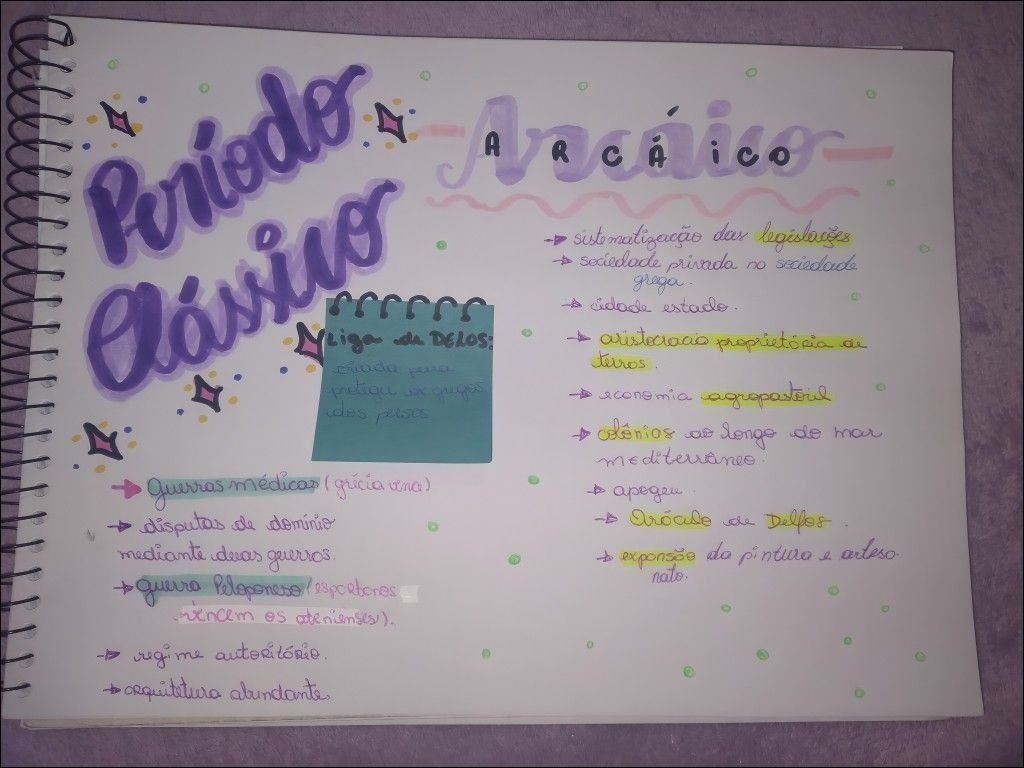 Período
Clássico
Liga de DELOS:
criada para
proteger os gregos
dos persas
Guerras médicas (grécia vence)
disputas de domínio
mediante duas guerras.
guerra Peloponeso (espartanos
vencem os atenienses).
regime autoritário.
arquitetura abundante,
ARCÁICO
sistematização das legislações
sociedade privada na sociedade
grega.
cidade estado.
aristocracia proprietária de
terras.
economia agropastoril
colônias ao longo do mar
mediterrâneo.
apogeu.
Oráculo de Delfos.
expansão da pintura e artesa
nato.